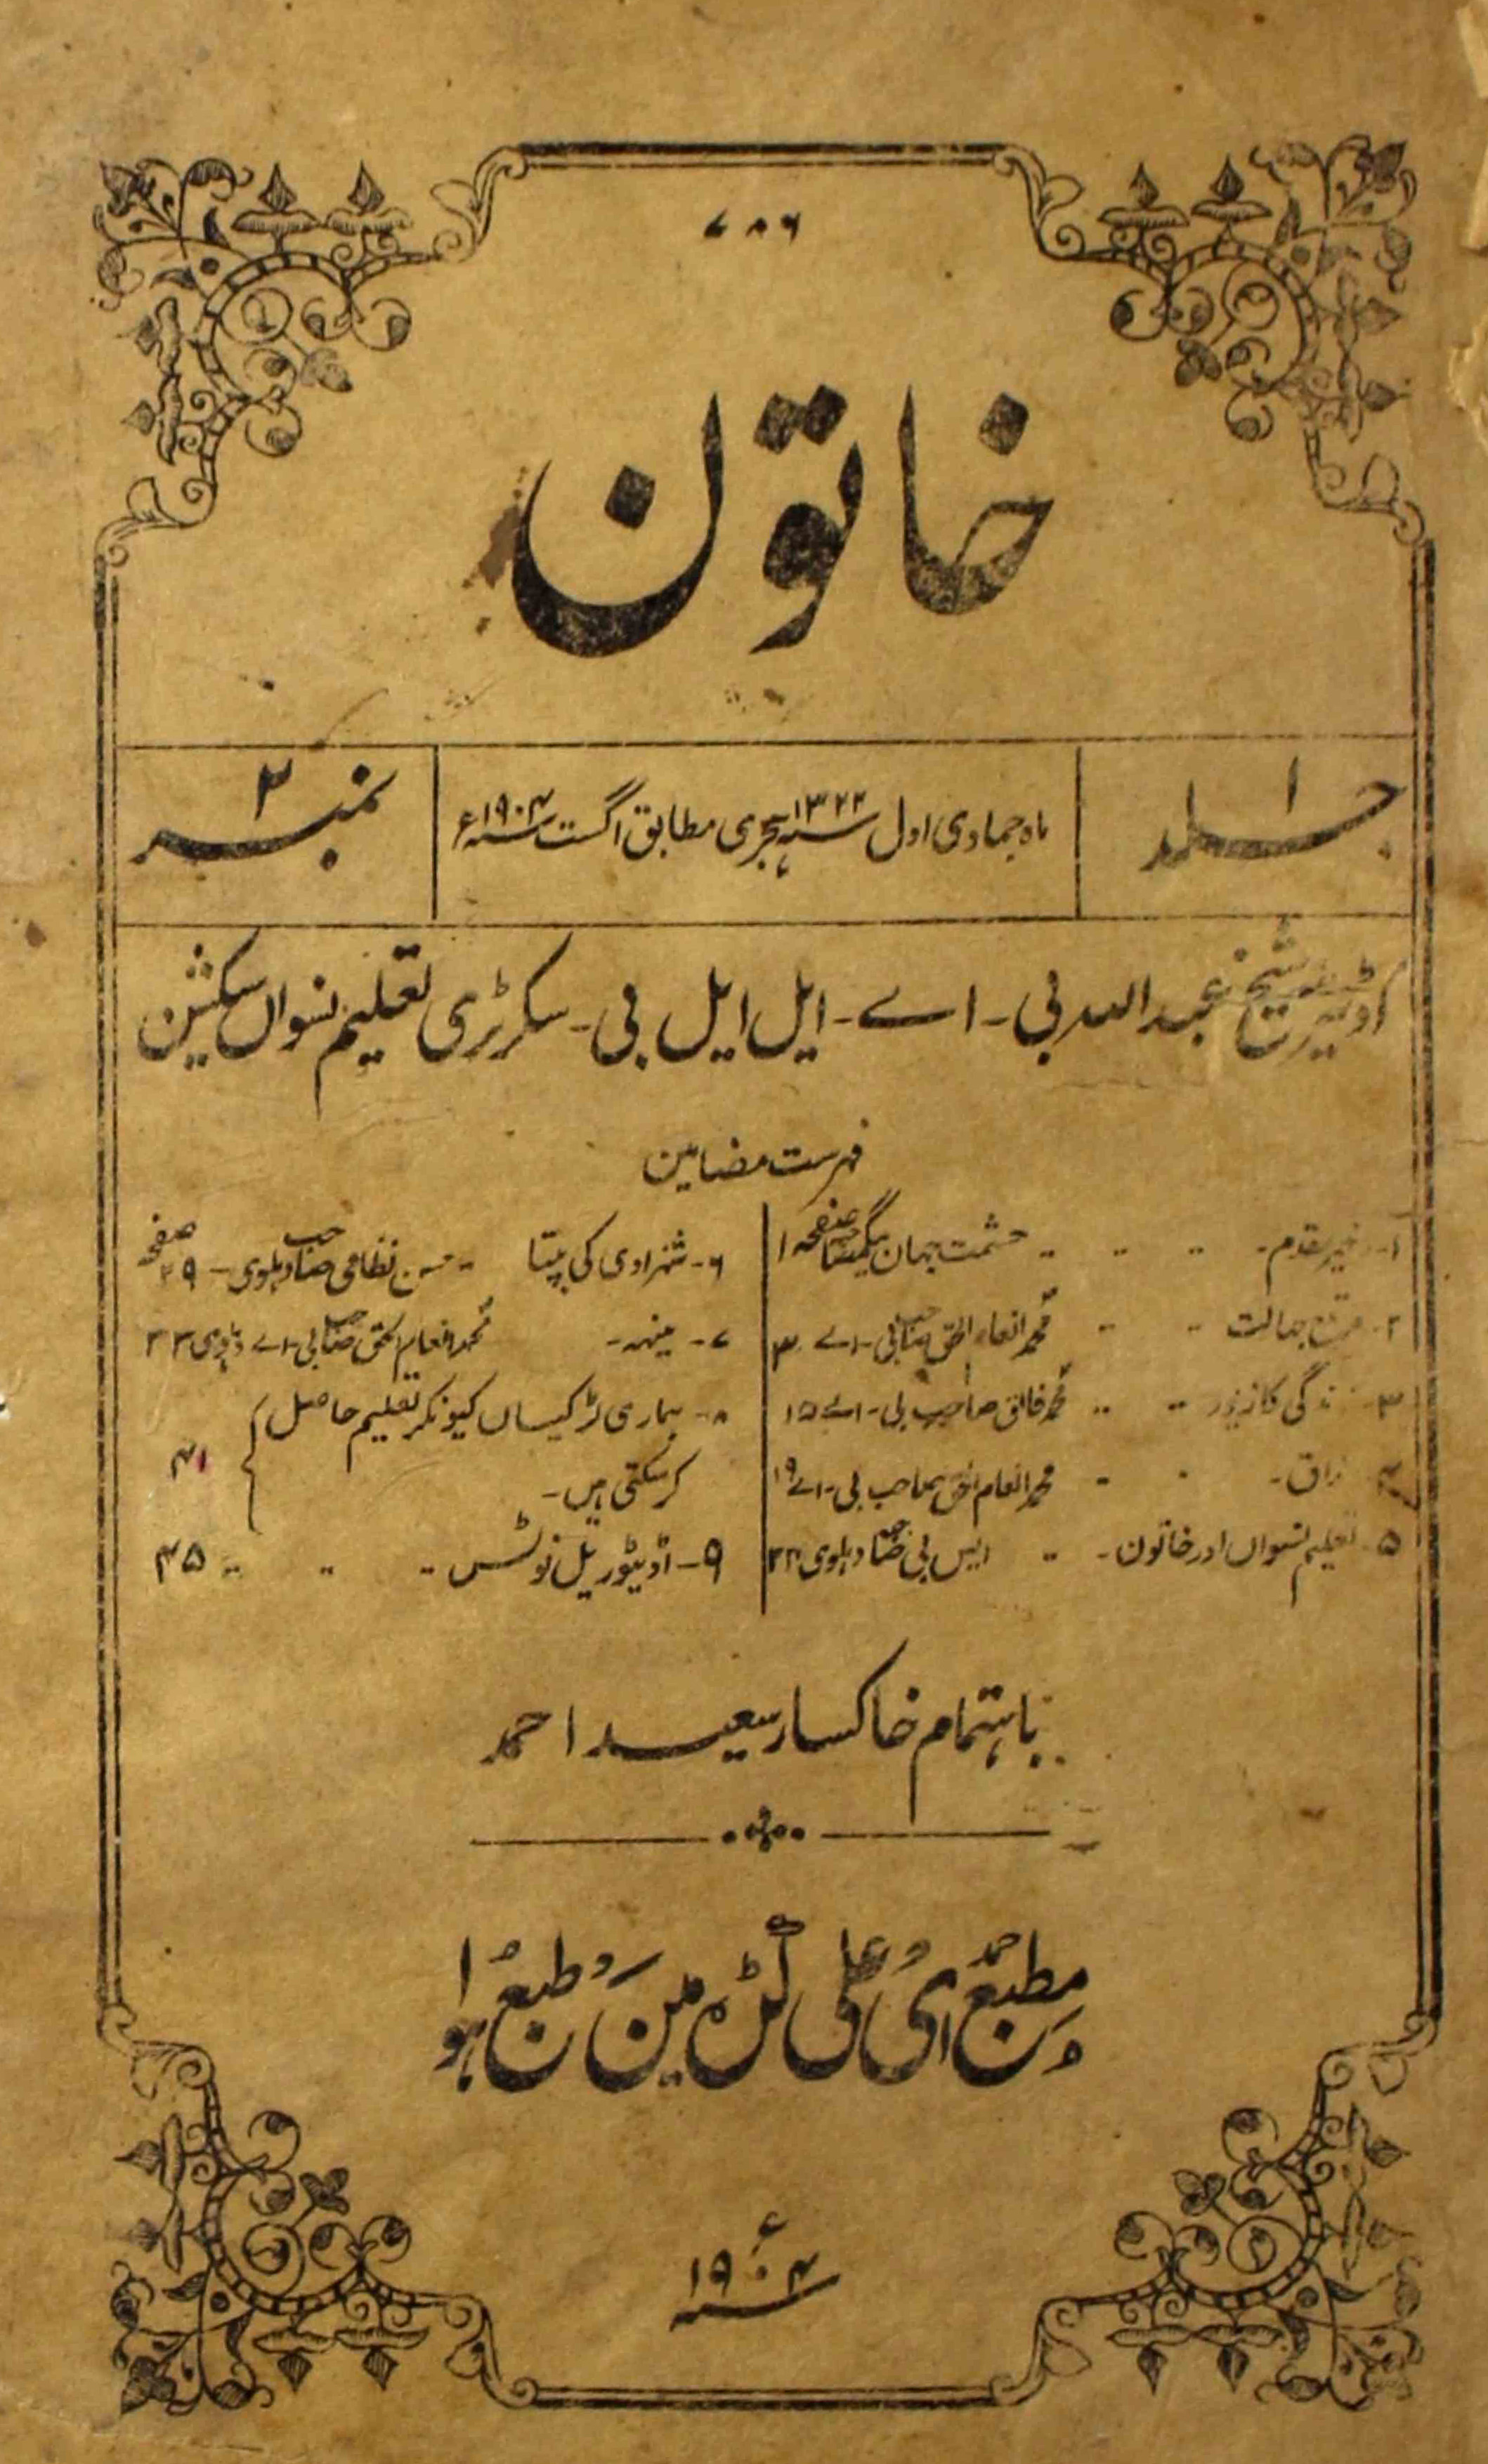 ۷۸۶
خاتون
جلد ۱
ماہ جمادی اول ۱۳۲۲ سنہ ہجری مطابق اگست سنہ ۱۹۰۴ء
نمبر ۲
اڈیٹر شیخ عبداللہ بی - اے - ایل ایل بی - سکرٹری تعلیم نسواں سکشن
فہرست مضامین
۱- خیر مقدم - حشمت جہان بیگم صاحبہ صفحہ ۱
۲- جہالت محمد انعام الحق صاحب بی - اے ۳
۳- زندگی کا زیور محمد فائق صاحب بی - اے ۱۵
۴- مذاق - محمد انعام الحق صاحب بی - اے ۱۹
۵- تعلیم نسواں اور خاتون - ایس بی صاحبہ دہلوی ۲۴
۶- شہزادی کی بپتا حسن نظامی صاحب دہلوی - صفحہ ۲۹
۷- مینہہ - محمد انعام الحق صاحب بی - اے دہلوی ۳۳
۸- ہماری لڑکیاں کیونکر تعلیم حاصل
کرسکتی ہیں - ۴۱
۹- اڈیٹوریل نوٹس ۴۵
باہتمام خاکسار سعید احمد
مطبع احمدی علی گڑہ مین طبع ہوا
سنہ ۱۹۰۴ء